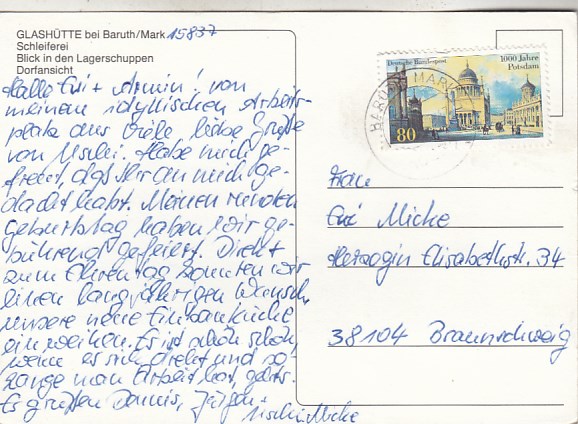 GLASHÜTTE bei Baruth/Mark 15837
Schleiferei
Blick in den Lagerschuppen
Dorfansicht
Hallo Evi + Armin! Von
meinem idyllischen Arbeits-
platz aus viele, liebe Grüße
von Uschi. Habe mich ge-
freut, daß Ihr an mich ge-
dacht habt. Meinen runden
Geburtstag haben wir ge-
bührend gefeiert. Direkt
zum Ehrentag konnten wir
einen langjährigen Wunsch,
unsere neue Einbauküche
einweihen. Es ist schön schön,
wenn es sich dreht und so-
lange man Arbeit hat, geht's.
Es grüßen Dennis, Jürgen +
Uschi Micke
Deutsche Bundespost
1000 Jahre
Potsdam
80
BARUTH MARK
Frau
Evi Micke
Herzogin Elisabethstr. 34
38104 Braunschweig